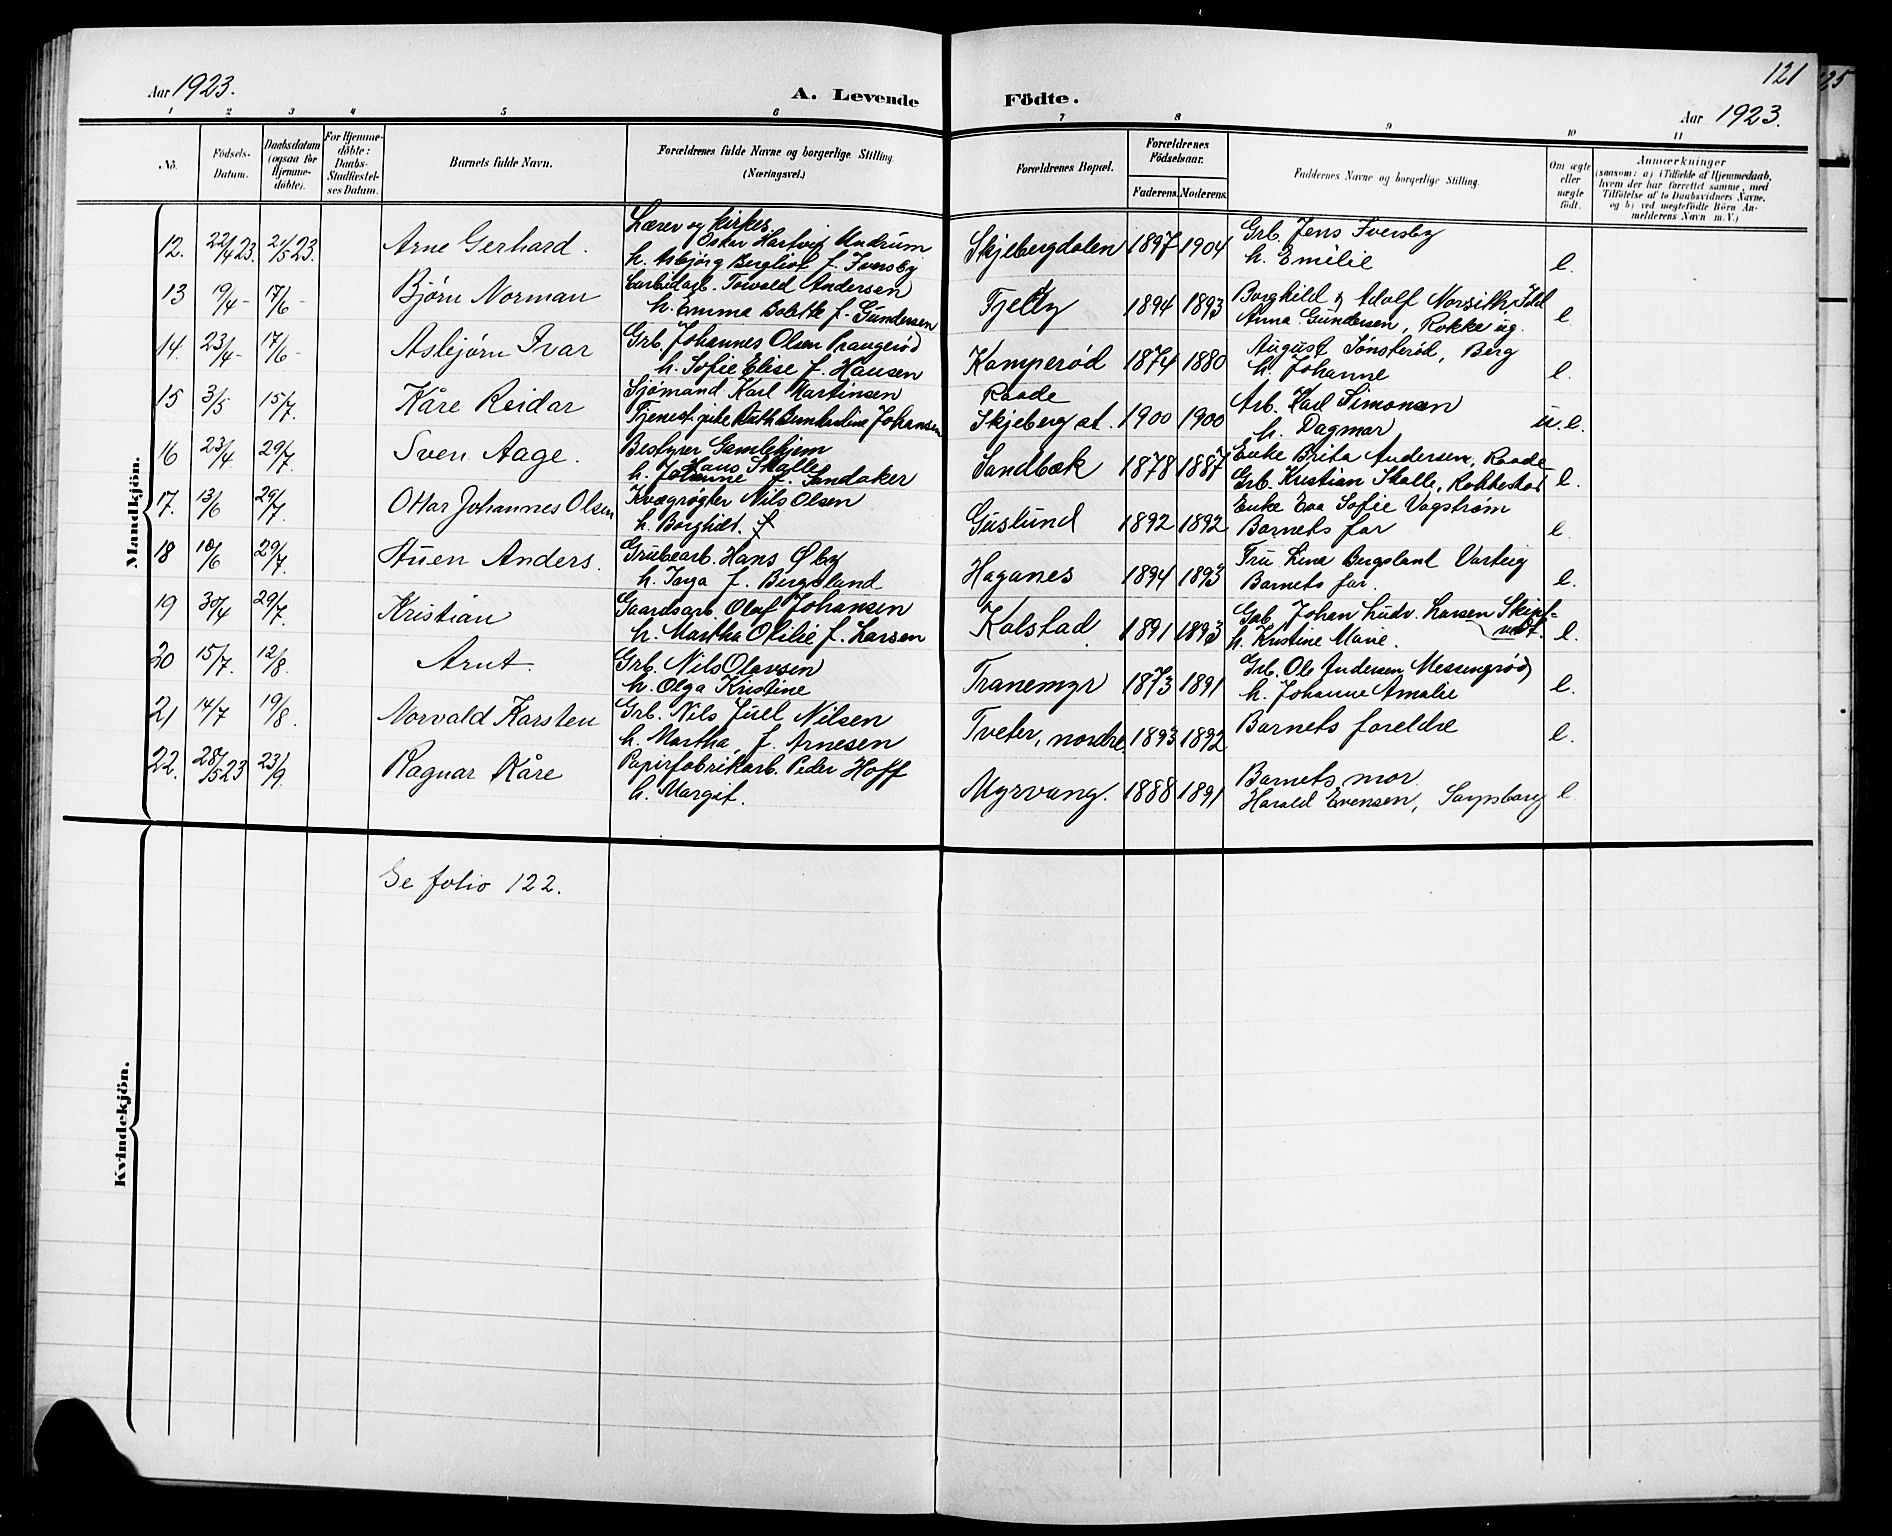 121
Aar 1923.
A. Levende Födte.
Aar 1923.
1 2 3 4 5 6 7 8 9 10 11
No.
Födsels-Datum.
Daabsdatum (ogsaa for Hjemmedöbte).
For Hjemmedöbte: Daabs-Stadfæstelses Datum.
Barnets fulde Navn.
Forældrenes fulde Navne og borgerlige Stilling. (Næringsvei.)
Forældrenes Bopæl.
Forældrenes Födselsaar.
Faderens. Moderens.
Faddernes Navne og borgerlige Stilling.
Om ægte eller uægte födt.
Anmærkninger
(saasom: a) i Tilfælde af Hjemmedaab,
hvem der har forrettet samme, med
Tilföielse af to Daabsvidners Navne,
og b) ved uægtefödte Börn An-
melderens Navn m. V.)
Mandkjön.
12. 22/4 23. 21/5 23. Arne Gerhard. Lærer og kirkes. Skjebergdalen 1897 1904 Grb. Jens Iversby
Oskar Hartvig Undrum
h. Asbjørg Bergliot f. Iversby h. Emilie e.
13 19/4 - 17/6 - Bjørn Norman Torvald Andersen Fjelly 1894 1893 Borghild & Adolf Norsith, Idd
h. Emma Bolette f. Gundersen Anna Gundersen, Rokke ug. e.
14. 23/4 - 17/6 - Asbjørn Ivar Grb. Johannes Olsen Prangerød Kamperød 1874 1880 August Tønsterød, Berg
h. Sofie Elise f. Hansen h. Johanne e.
15 3/5 15/7. Kåre Reidar Sjømand Karl Martinsen Raade 1900 1900 Arb. Karl Simonsen
Tjenest. pike Ruth Bernhardine Johansen Skjeberg st. h. Dagmar u.e.
16 23/4. 29/7. Sven Aage. Bestyrer Gamlehjem Sandbæk 1878 1887 Enke Brita Andersen, Raade
Hans Skalle
h. Johanne f. Sandaker Grb. Kristian Skalle, Rokkestad e.
17. 13/6 29/7. Ottar Johannes Olsen Kvægrøgter Nils Olsen Guslund 1892 1892 Enke Eva Sofie Vagstrøm
h. Borghild. f. Barnets far e.
18 10/6 29/7. Anders. Grubearb. Hans Øby Haganes 1894 1893 Fru Lina Bergsland Varteig
h. Inga f. Bergsland Barnets far. e.
19 30/4 29/7. Kristian Gaardsarb. Olaf Johansen Kolstad 1891 1893 Grb. Johan Ludv. Larsen Skipt-
vedt.
h. Martha Otilie f. Larsen h. Kristine Marie. e.
20 15/7. 12/8. Arnt. Grb. Nils Olavsen Tranemyr 1873 1891 Grb. Ole Andersen Messengrød
h. Olga Kristine h. Johanne Amalie e.
21 14/7 19/8. Norvald Karsten Grb. Nils Juel Nilsen Tveter, nordre. 1893 1892 Barnets foreldre
h. Martha, f. Arnesen e.
22. 28/5 23 23/9. Ragnar Kåre Papirfabrikarb. Peder Hoff Myrvang. 1888 1891 Barnets mor.
h. Margit. Harald Evensen, Sarpsborg e
Kvindekjön.
Se folio 122.